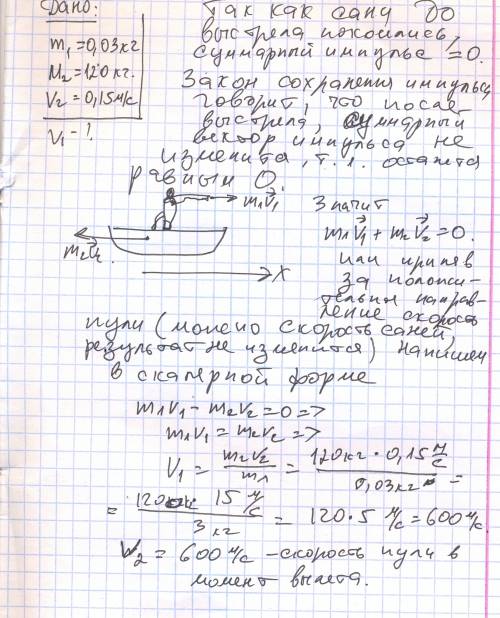 Дано:
m₁=0,03кг
M₂=120кг.
V₂=0,15м/с
V₁-?
Так как сани до
выстрела покоились,
суммарный импульс =0.
Закон сохранения импульса
говорит, что после
выстрела, суммарный
вектор импульса не
изменится, т.е. останется
равным 0.
m₁V⃗₁
m₂V⃗₂
X
Значит
m₁V⃗₁+m₂V⃗₂=0.
или приняв
за положи-
тельны направ-
ление скорость
пули (можно скорость саней,
результат не изменится) напишем
в скалярной форме
m₁V₁-m₂V₂=0=>
m₁V₁=m₂V₂=>
V₁ = m₂V₂/m₁ = 120кг·0,15 м/с / 0,03кг =
= 120 15 м/с / 3 кг = 120·5 м/с=600 м/с.
V₂ = 600 м/с -скорость пули в
момент вылета.